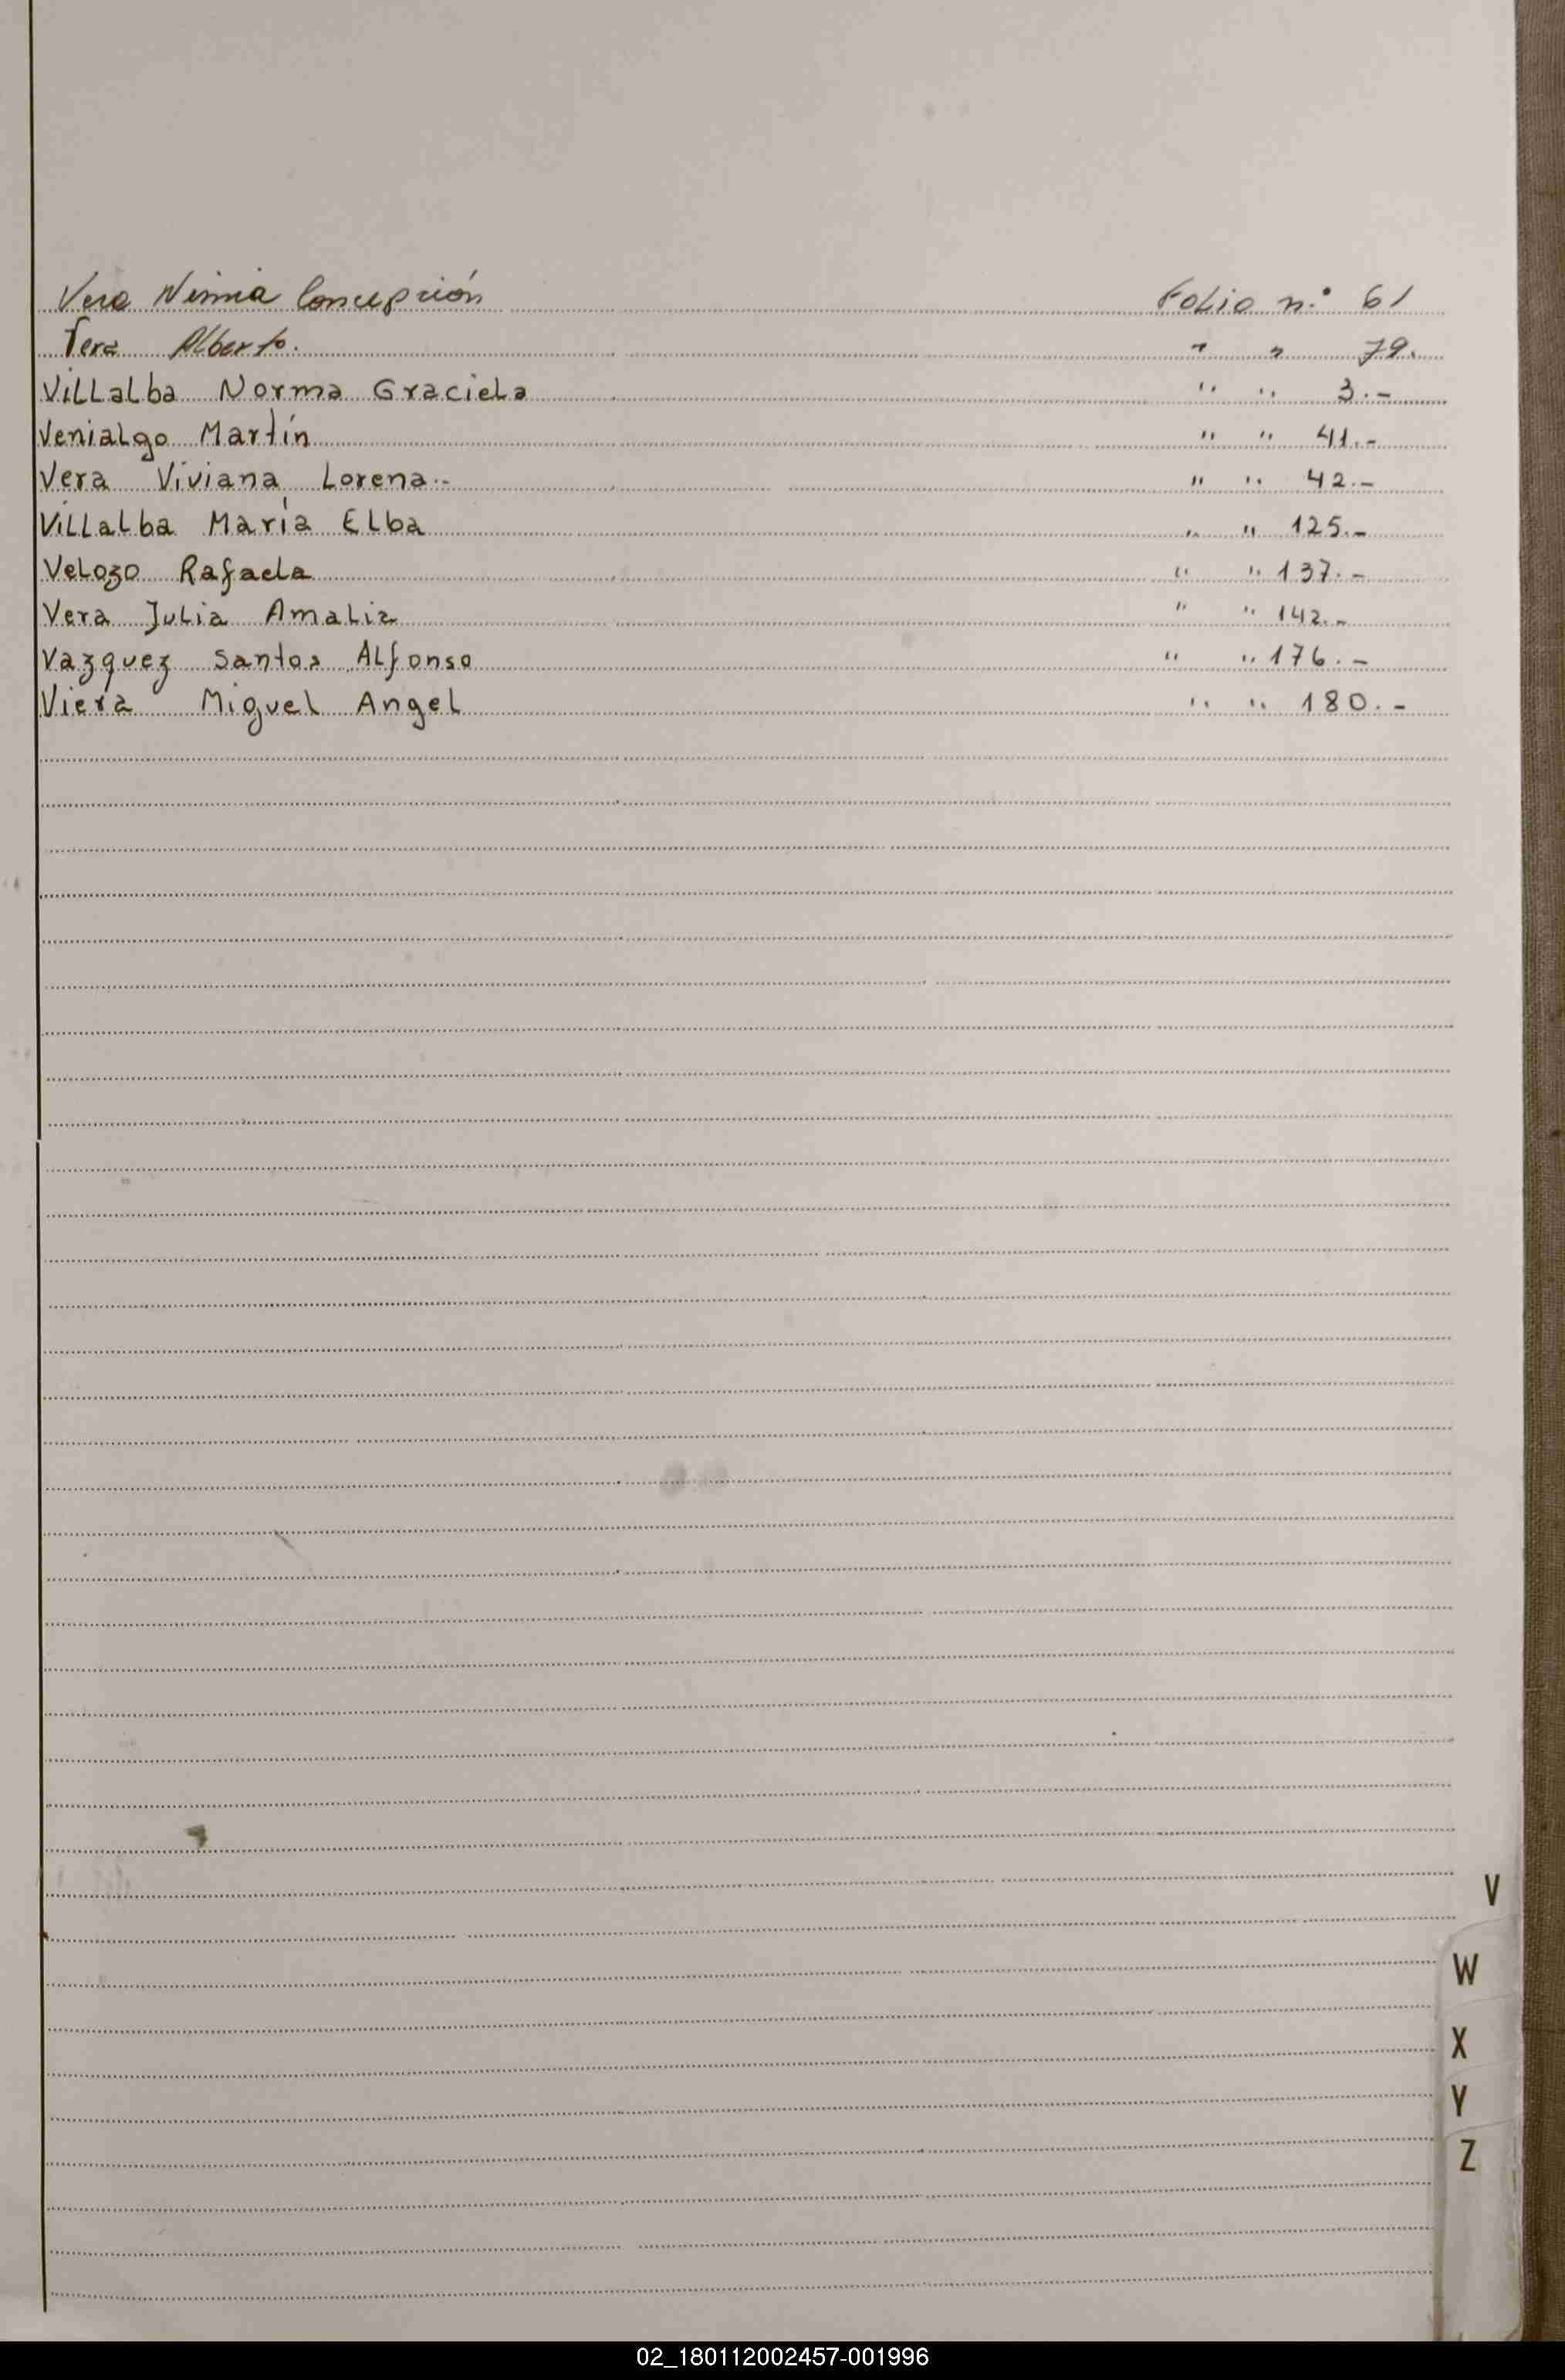 Vera Ninia Concepción Folio n.º 61
Vera Alberto. " " 79.
Villalba Norma Graciela " " 3.-
Venialgo Martín " " 41.-
Vera Viviana Lorena.- " " 42.-
Villalba María Elba " " 125.-
Velozo Rafaela " " 137.-
Vera Julia Amalia " " 142.-
Vazquez Santos Alfonso " " 176.-
Viera Miguel Angel " " 180.-
V
W
X
Y
Z
02_180112002457-001996